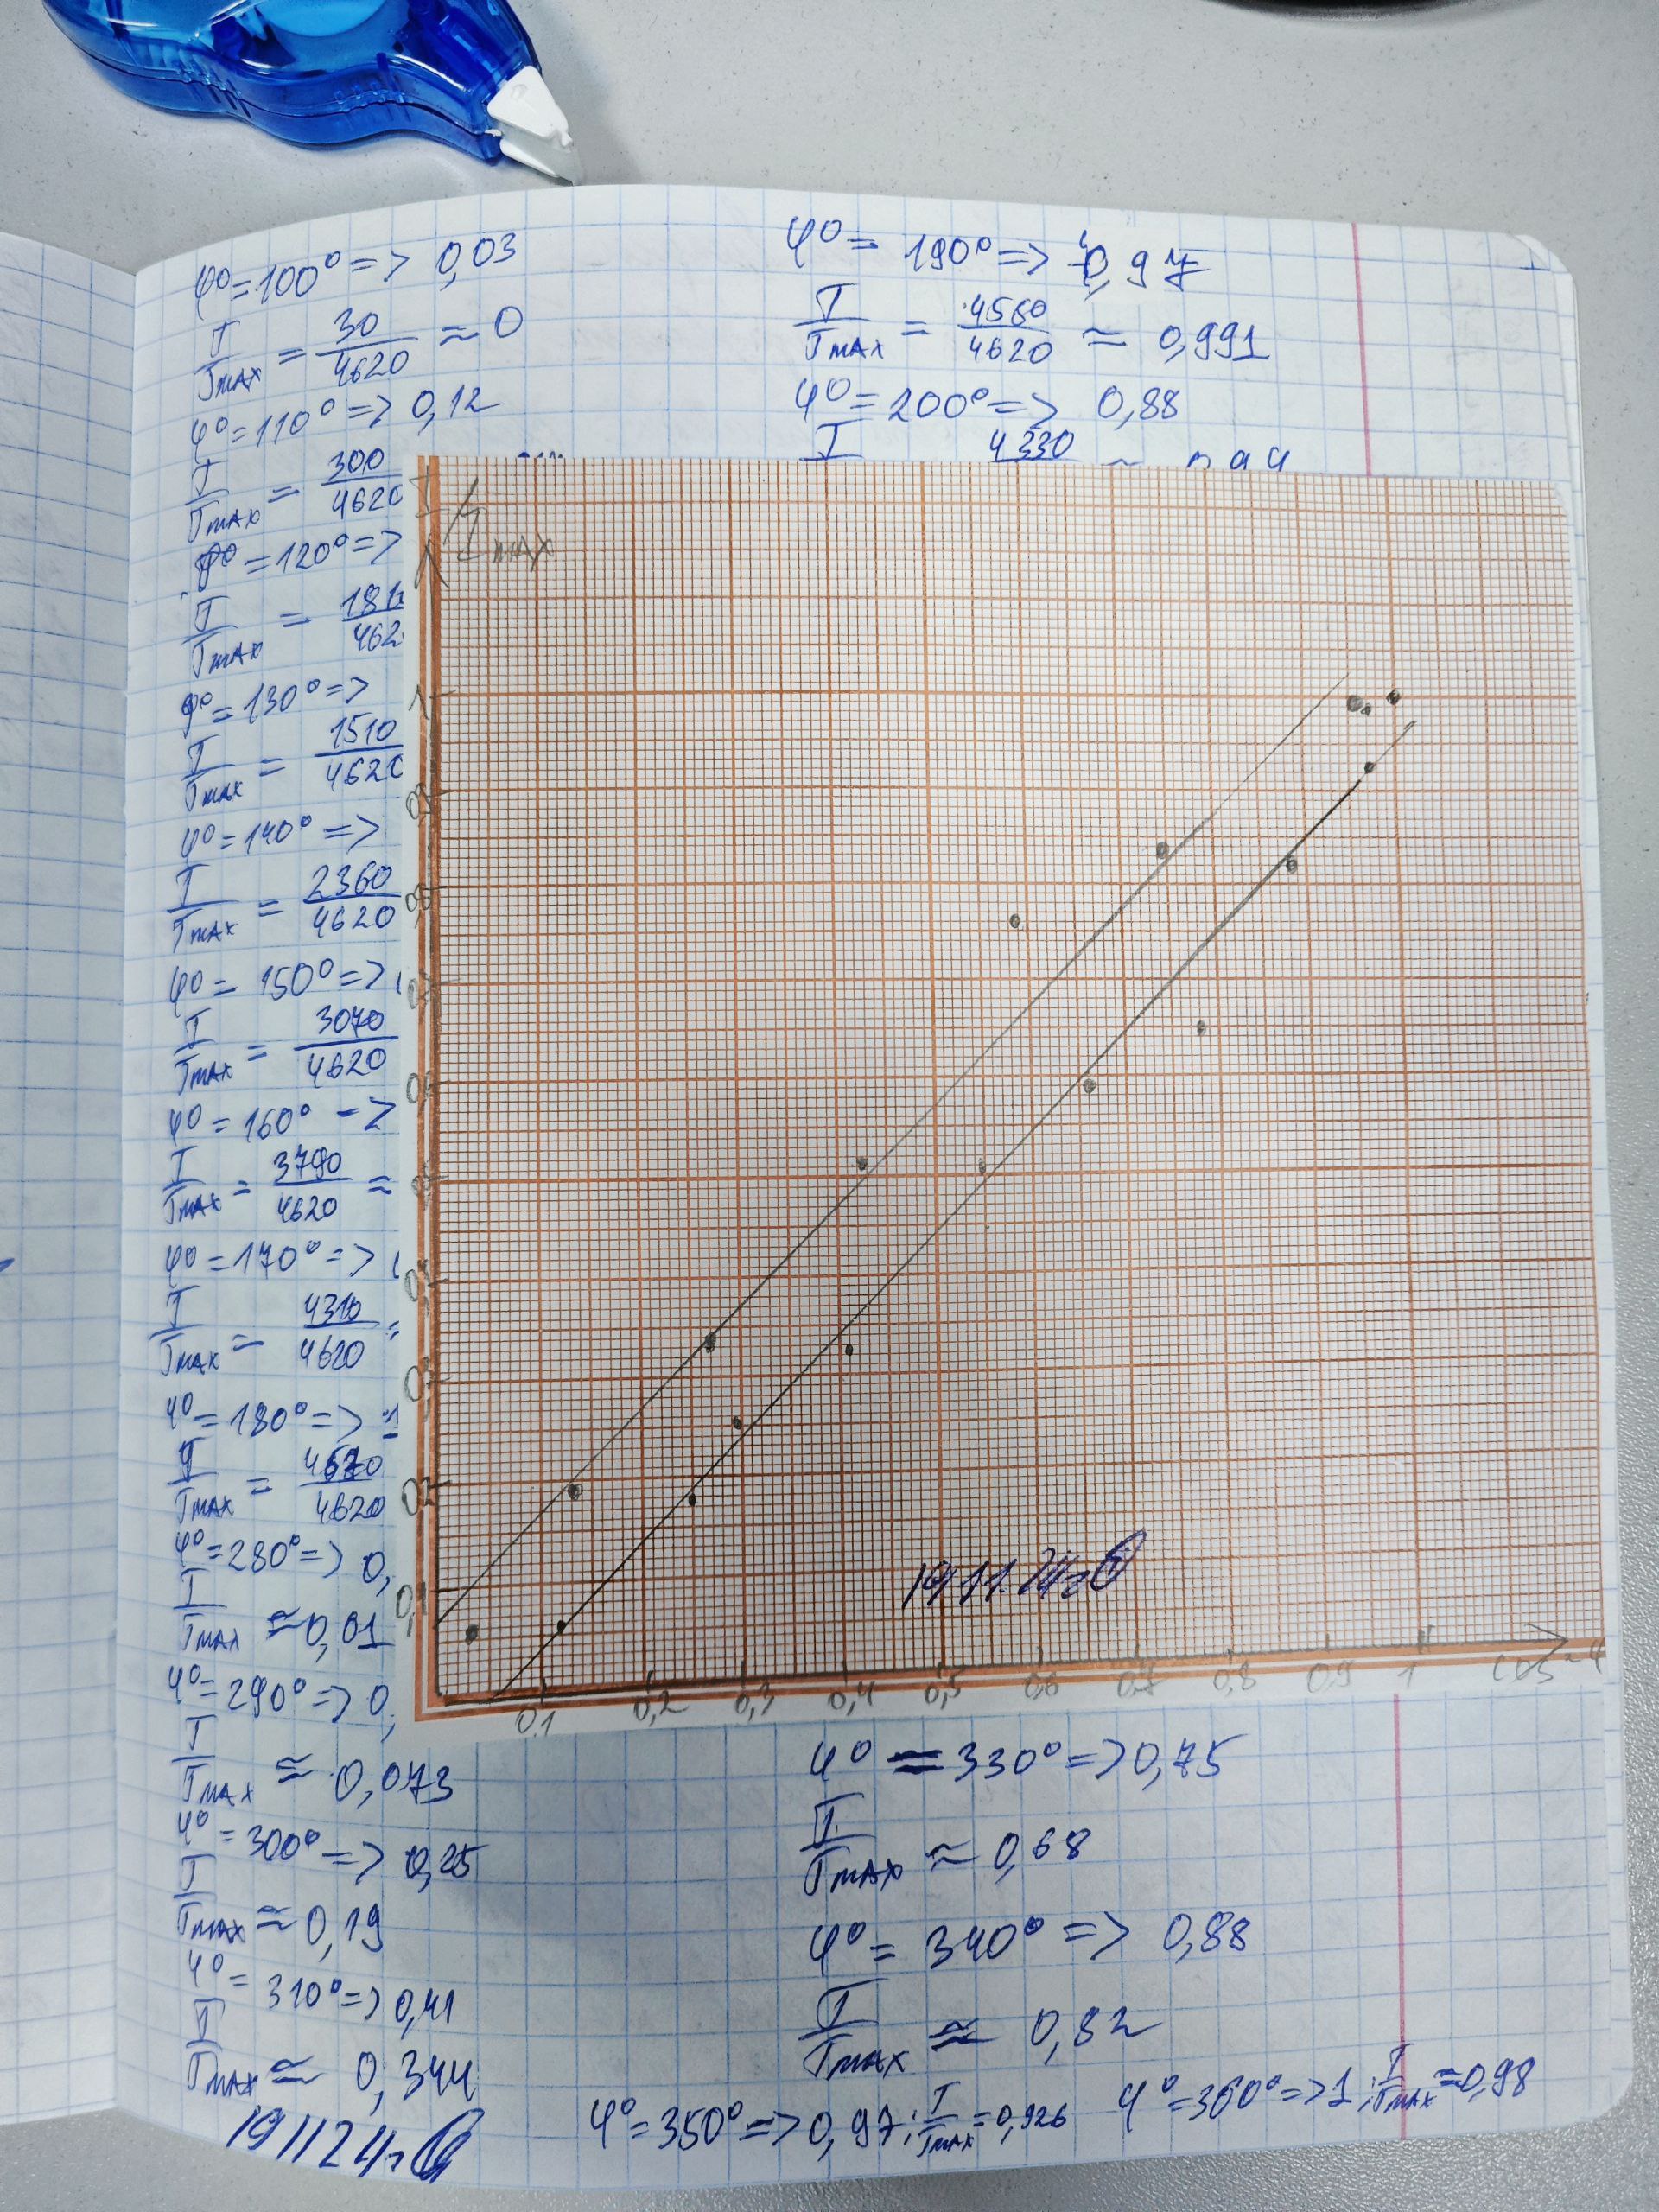 φ° = 100° => 0,03
I/Imax = 30/4620 ≈ 0
φ° = 110° => 0,12
I/Imax = 300/4620
φ° = 120° =>
I/Imax =
φ° = 130° =>
I/Imax = 1510/4620
φ° = 140° =>
I/Imax = 2360/4620
φ° = 150° =>
I/Imax = 3070/4620
φ° = 160° =>
I/Imax = 3790/4620 ≈
φ° = 170° =>
I/Imax = 4310/4620 =
φ° = 180° =>
I/Imax = /4620
φ° = 280° => 0,
I/Imax ≈ 0,01
φ° = 290° => 0,
I/Imax ≈ 0,073
φ° = 300° => 0,25
I/Imax ≈ 0,19
φ° = 310° => 0,41
I/Imax ≈ 0,344
191124г.
φ° = 190° => 0,97
I/Imax = 4560/4620 ≈ 0,991
φ° = 200° => 0,88
I 4330 ≈
I/Imax
1
0,6
0,3
0,2
0,1
0,1 0,2 0,3 0,4 0,5 0,6 0,7 0,8 0,9 1
19.11.24г.
φ° = 330° => 0,75
I/Imax ≈ 0,68
φ° = 340° => 0,88
I/Imax ≈ 0,82
φ° = 350° => 0,97; I/Imax = 0,926
φ° = 360° => 1; I/Imax ≈ 0,98